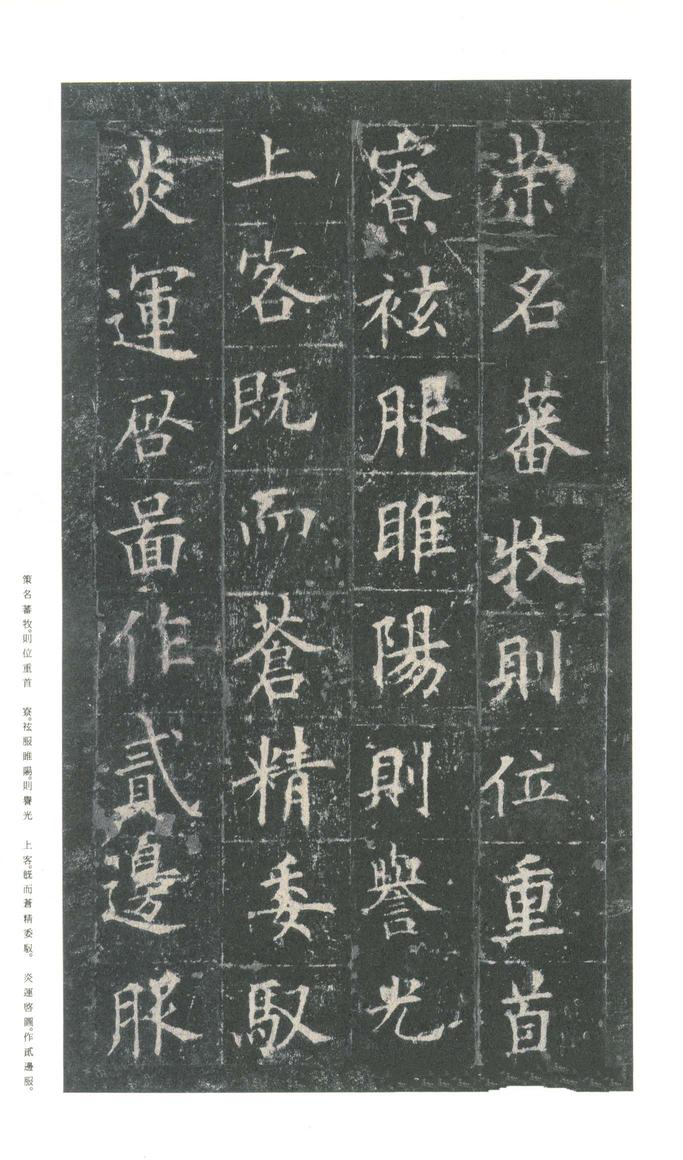 策名蕃牧則位重首
寮袨服睢陽則譽光
上客既而蒼精委馭
炎運啓圖作貳邊服
策名蕃牧。則位重首　寮。袨服睢陽。則譽光　上客。既而蒼精委馭。　炎運啓圖。作貳邊服。